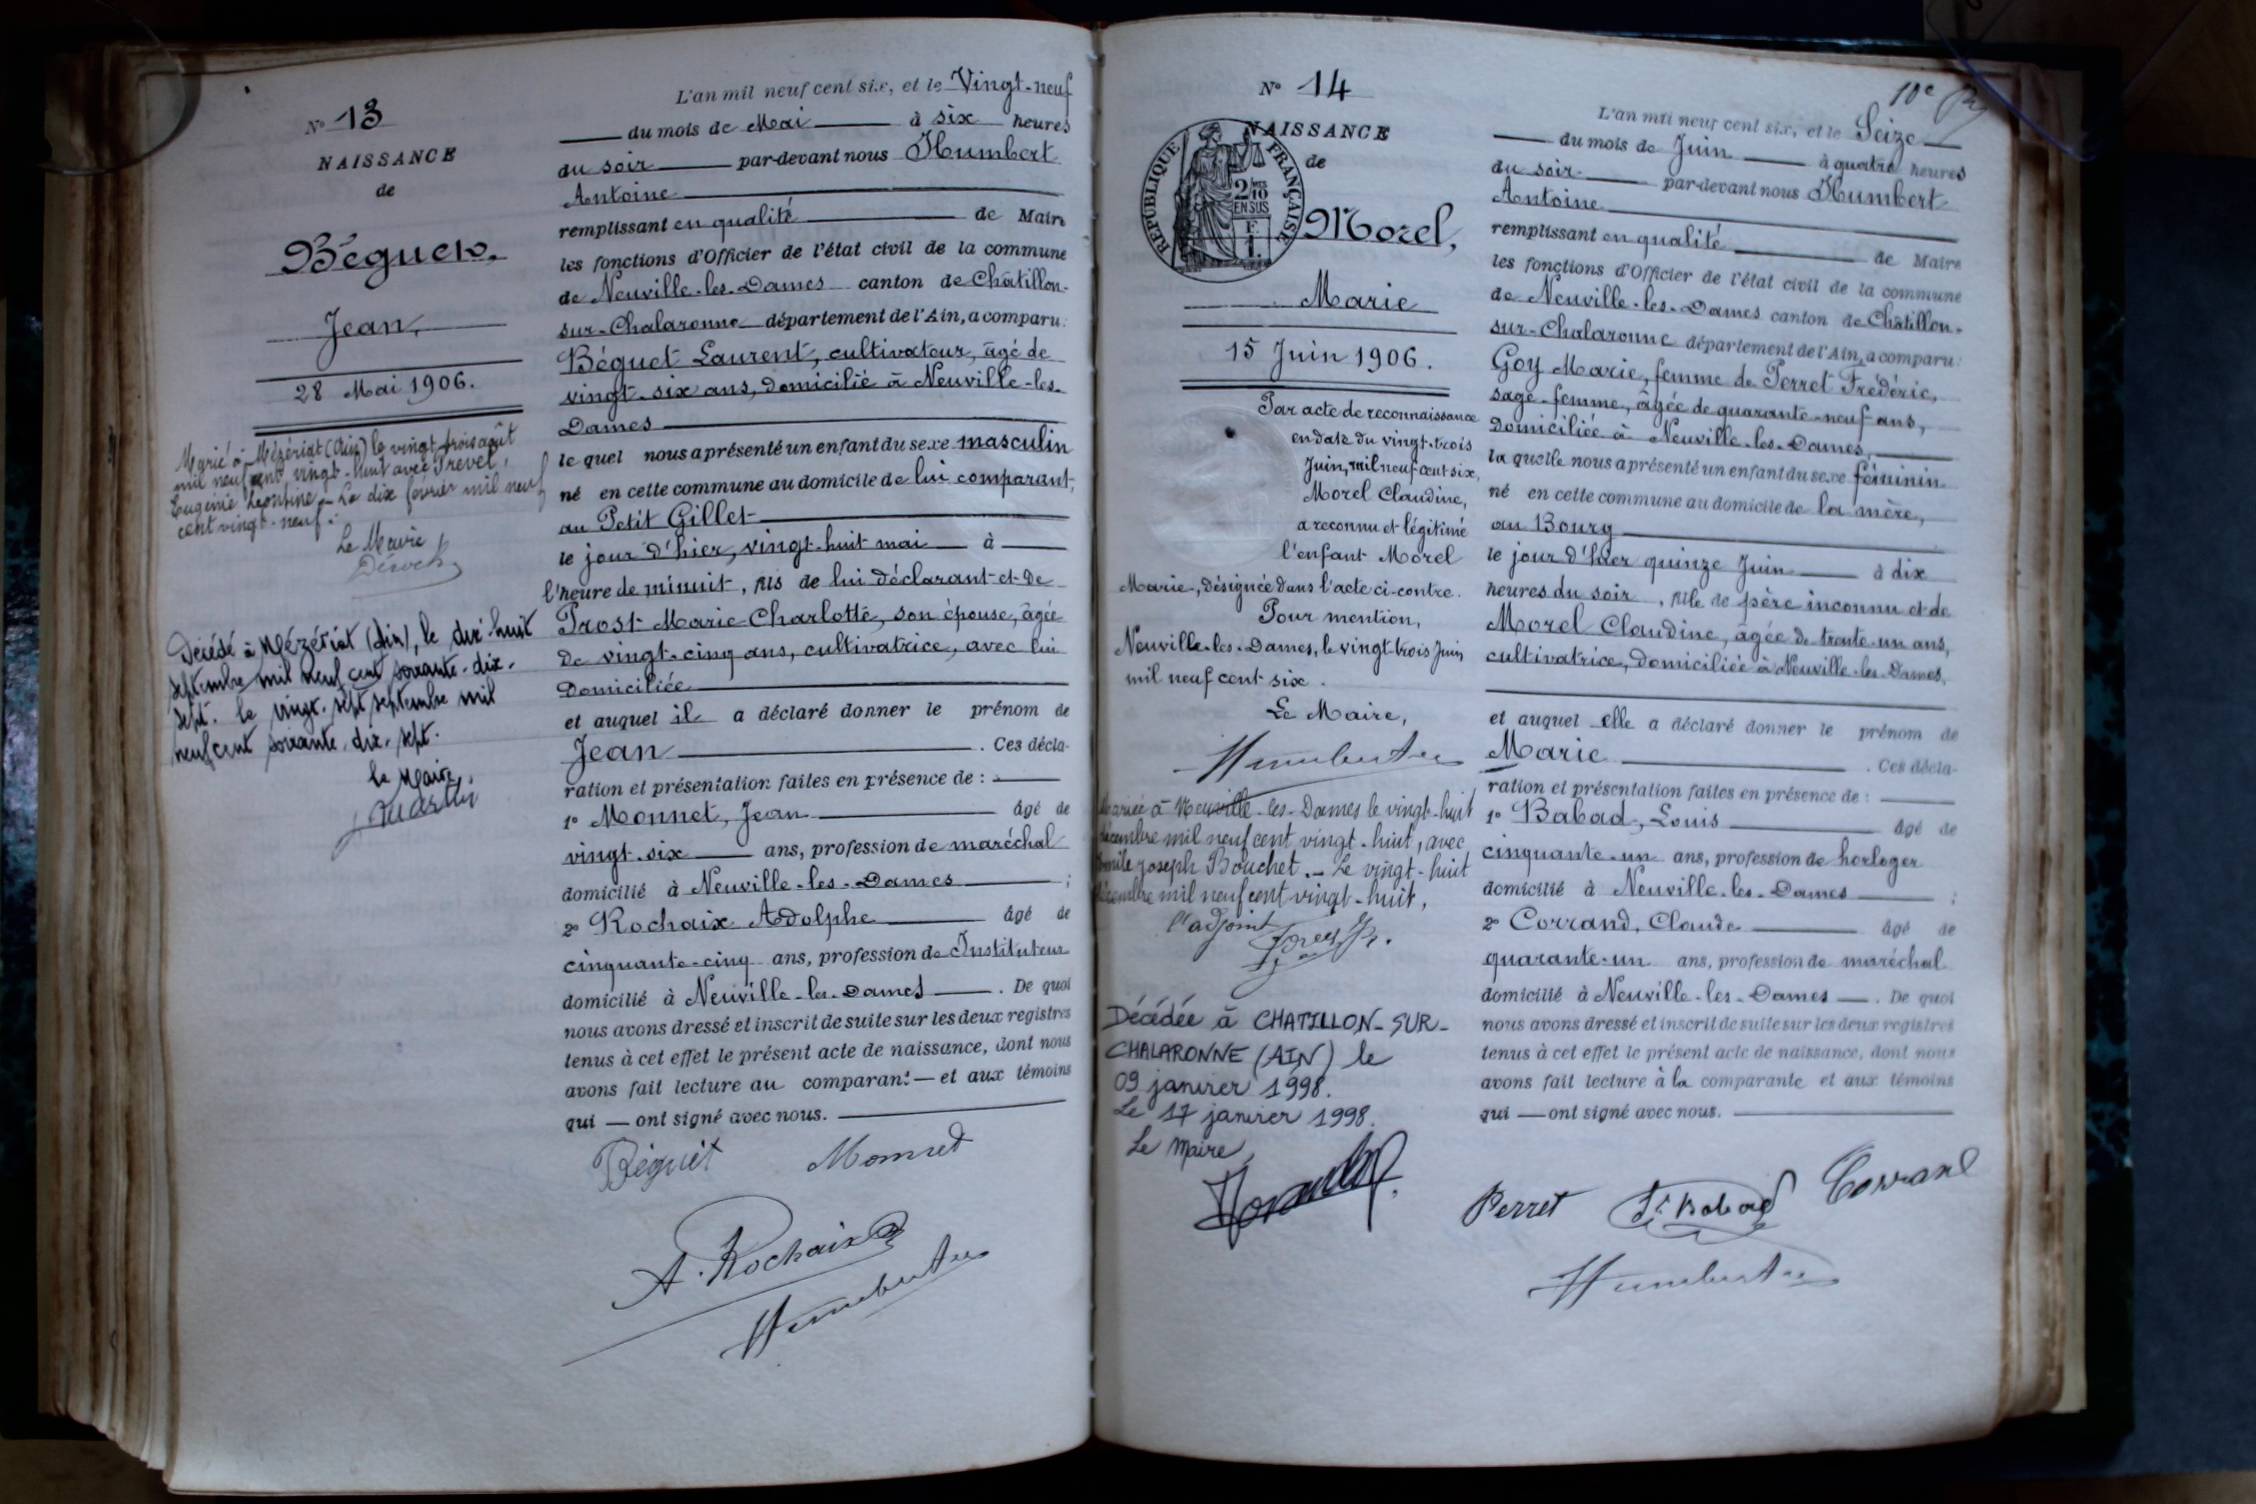 Nº 13
NAISSANCE
de
Béguet,
Jean,
28 Mai 1906.
Marié à Mézériat (Ain) le vingt trois août
mil neuf cent vingt-huit avec Trevel,
Eugénie Léontine - Le dix février mil neuf
cent vingt-neuf.
Le Maire
Décédé à Mézériat (Ain), le dix-huit
septembre mil neuf cent soixante-dix-
sept. le vingt-sept septembre mil
neuf cent soixante-dix-sept.
le Maire,
L'an mil neuf cent six, et le Vingt-neuf
du mois de Mai à six heures
du soir par-devant nous Humbert
Antoine
remplissant en qualité de Maire
les fonctions d'Officier de l'état civil de la commune
de Neuville-les-Dames canton de Châtillon-
sur-Chalaronne département de l'Ain, a comparu:
Béguet Laurent, cultivateur, âgé de
vingt-six ans, domicilié à Neuville-les-
Dames
lequel nous a présenté un enfant du sexe masculin
né en cette commune au domicile de lui comparant,
au Petit Gillet
le jour d'hier, vingt-huit mai à
l'heure de minuit, fils de lui déclarant et de
Prost Marie Charlotte, son épouse, âgée
de vingt-cinq ans, cultivatrice, avec lui
domiciliée
et auquel il a déclaré donner le prénom de
Jean. Ces décla-
ration et présentation faites en présence de :
1º Monnet, Jean âgé de
vingt-six ans, profession de maréchal
domicilié à Neuville-les-Dames ;
2º Rochaix Adolphe âgé de
cinquante-cinq ans, profession de Instituteur
domicilié à Neuville-les-Dames. De quoi
nous avons dressé et inscrit de suite sur les deux registres
tenus à cet effet le présent acte de naissance, dont nous
avons fait lecture au comparant — et aux témoins
qui — ont signé avec nous.
Béguet Monnet
A. Rochaix
Humbert An
10e
Nº 14
NAISSANCE
de
RÉPUBLIQUE FRANÇAISE
2 MES
10
EN SUS
F.
1.
Morel,
Marie
15 Juin 1906.
Par acte de reconnaissance
en date du vingt-trois
Juin, mil neuf cent six,
Morel Claudine,
a reconnu et légitimé
l'enfant Morel
Marie, désignée dans l'acte ci-contre.
Pour mention,
Neuville-les-Dames, le vingt-trois Juin
mil neuf cent six.
Le Maire,
Humbert An
Mariée à Neuville-les-Dames le vingt-huit
décembre mil neuf cent vingt-huit, avec
Emile Joseph Bouchet. - Le vingt-huit
décembre mil neuf cent vingt-huit,
l'adjoint
Décédée à CHATILLON-SUR-
CHALARONNE (AIN) le
09 janvier 1998.
Le 17 janvier 1998.
Le Maire,
L'an mil neuf cent six, et le Seize
du mois de Juin à quatre heures
du soir par-devant nous Humbert
Antoine
remplissant en qualité de Maire
les fonctions d'Officier de l'état civil de la commune
de Neuville-les-Dames canton de Châtillon-
sur-Chalaronne département de l'Ain, a comparu:
Goy Marie, femme de Perret Frédéric,
sage-femme, âgée de quarante-neuf ans,
domiciliée à Neuville-les-Dames,
laquelle nous a présenté un enfant du sexe féminin
né en cette commune au domicile de la mère,
au Bourg
le jour d'hier quinze Juin à dix
heures du soir, fille de père inconnu et de
Morel Claudine, âgée de trente-un ans,
cultivatrice, domiciliée à Neuville-les-Dames,
et auquel elle a déclaré donner le prénom de
Marie. Ces décla-
ration et présentation faites en présence de :
1º Babad, Louis âgé de
cinquante-un ans, profession de horloger
domicilié à Neuville-les-Dames ;
2º Corrand, Claude âgé de
quarante-un ans, profession de maréchal
domicilié à Neuville-les-Dames —. De quoi
nous avons dressé et inscrit de suite sur les deux registres
tenus à cet effet le présent acte de naissance, dont nous
avons fait lecture à la comparante et aux témoins
qui — ont signé avec nous.
Perret Ls Babad Corrand
Humbert An